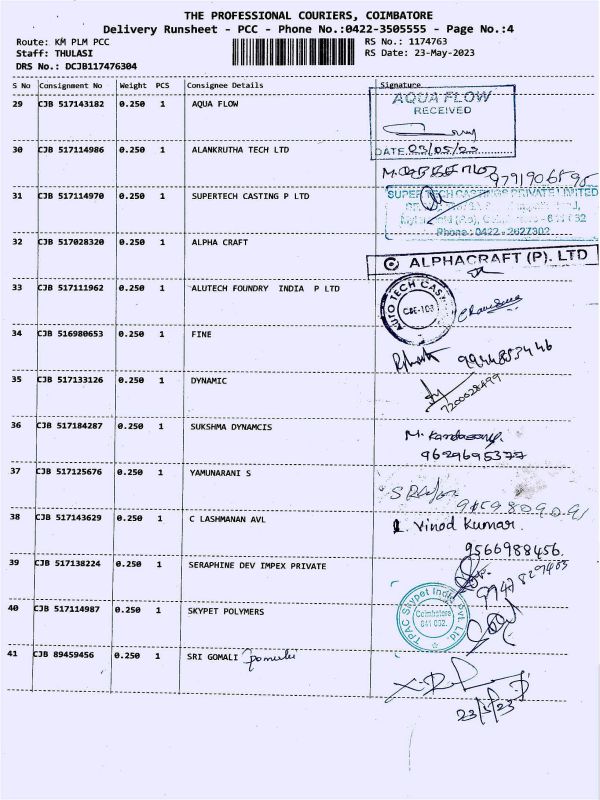 THE PROFESSIONAL COURIERS, COIMBATORE
Delivery Runsheet - PCC - Phone No.:0422-3505555 - Page No.:4
Route: KM PLM PCC
RS No.: 1174763
Staff: THULASI
RS Date: 23-May-2023
DRS No.: DCJB117476304
S No Consignment No Weight PCS Consignee Details Signature
29 CJB 517143182 0.250 1 AQUA FLOW
AQUA FLOW
RECEIVED
DATE 23/05/23
30 CJB 517114986 0.250 1 ALANKRUTHA TECH LTD
9791906595
31 CJB 517114970 0.250 1 SUPERTECH CASTING P LTD
SUPER TECH CASTINGS PRIVATE LIMITED
Phone: 0422 - 2627302
32 CJB 517028320 0.250 1 ALPHA CRAFT
ALPHACRAFT (P). LTD
33 CJB 517111962 0.250 1 ALUTECH FOUNDRY INDIA P LTD
AUTO TECH CAST
CBE-103
34 CJB 516980653 0.250 1 FINE
9944853446
35 CJB 517133126 0.250 1 DYNAMIC
7200028499
36 CJB 517184287 0.250 1 SUKSHMA DYNAMCIS
M. Kandasamy
9629695377
37 CJB 517125676 0.250 1 YAMUNARANI S
9159809091
38 CJB 517143629 0.250 1 C LASHMANAN AVL
L. Vinod Kumar.
9566988456.
39 CJB 517138224 0.250 1 SERAPHINE DEV IMPEX PRIVATE
40 CJB 517114987 0.250 1 SKYPET POLYMERS
TPAC Skypet India Pvt. Ltd.
Coimbatore
641 032.
41 CJB 89459456 0.250 1 SRI GOMALI
23/5/23